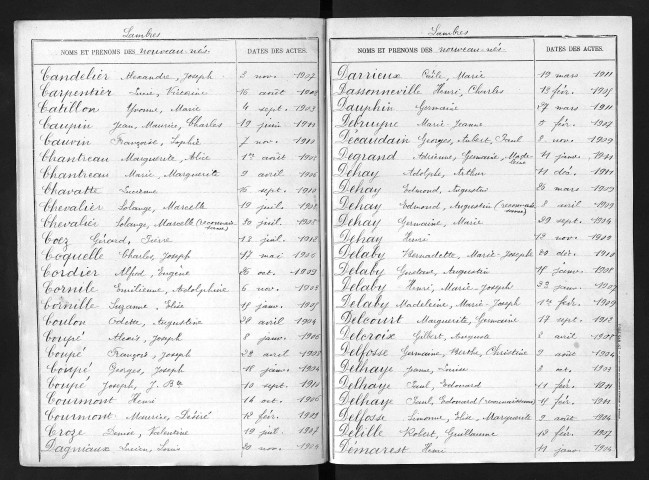 Sambres
NOMS ET PRENOMS DES nouveau-nés. DATES DES ACTES.
Candelier Alexandre, Joseph 3 nov. 1907
Carpentier Victorine 16 août
Catillon Yvonne, Marie 4 sept. 1903
Caupin Jean, Maurice, Charles 19 juin
Cauvin Françoise, Sophie 7 nov. 1910
Chantreau Marguerite, Alice 1er août
Chantreau Marie, Marguerite 9 avril 1906
Chavatte Lucienne 16 sept. 1910
Chevalier Solange, Marcelle 19 juil.
Chevalier Solange, Marcelle (reconnaissance) 30 juil.
Coez Gérard, 12 juil.
Coquelle Charles, Joseph 17 mai 1906
Cordier Alfred, Eugène 26 oct.
Cornile Emilienne, Adolphine 6 nov.
Cornille Suzanne, Elise janv.
Coulon Odette, Augustine 28 avril 1904
Coupé Alexis, Joseph 8 janv. 1906
Coupé François, Joseph 22 avril
Coupé Georges, Joseph 18 janv.
Coupé Joseph, J. Bte 10 sept. 1911
Courmont Henri 14 oct. 1906
Courmont Maurice, Désiré 12 fév.
Croze Denise, Valentine 19 juil. 1907
Dagniaux Lucien, Louis 20 nov. 1904
Sambres
NOMS ET PRENOMS DES nouveau-nés. DATES DES ACTES.
Darrieux Marie 19 mars 1911
Dassonneville Henri, Charles 12 fév.
Dauphin Germaine 17 mars 1911
Debruyne Marie-Jeanne 5 fév. 1907
Décaudain Georges, Aubert, Paul 8 nov. 1909
Degrand Adrienne, Germaine, Madeleine 11 janv.
Dehay Adolphe, Arthur 11 déc.
Dehay Edmond, Augustin 26 mars
Dehay Edmond, Augustin (reconnaissance) 8 avril
Dehay Germaine, Marie 29 sept. 1904
Dehay Henri 12 nov.
Delaby Bernadette, Marie-Josèphe 20 déc.
Delaby Gustave, Augustin janv.
Delaby Henri, Marie-Joseph 22 janv. 1907
Delaby Madeleine, Marie-Joseph 1er fév. 1909
Delcourt Marguerite, Germaine 17 sept. 1912
Delcroix Gilbert, Auguste 8 avril
Delfosse Germaine, Berthe, Christine 9 août 1904
Delhaye Jeanne, Louise 8 oct.
Delhaye Paul, Edouard 11 fév. 1911
Delhaye Paul, Edouard (reconnaissance) fév. 1911
Delfosse Simonne, Elise, Marguerite 2 août
Delille Robert, Guillaume 12 fév. 1907
Demarest Henri 11 janv.